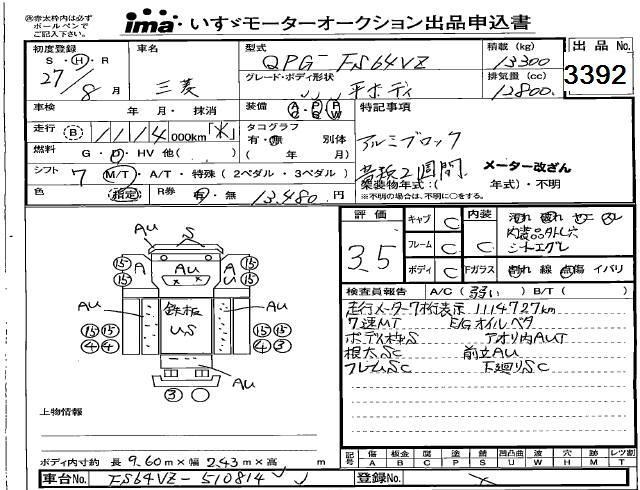 ㊟赤太枠内は必ず
ボールペンで
ご記入下さい。
ima いすゞモーターオークション出品申込書
初度登録
S・H・R
27/8 月
車名
三菱
型式
QPG-FS64VZ
グレード・ボディ形状
平ボディ
積載 (kg)
13300
排気量 (cc)
12800
出品 No.
3392
車検 年・月・抹消
装備 A/C P/S P/W
特記事項
走行 B 1114 000km「水」
タコグラフ
有・無 別体
( 年 月)
アルミブロック
燃料 G・D・HV 他( )
シフト 7 M/T・A/T・特殊(2ペダル・3ペダル)
2週間
メーター改ざん
架装物年式:( 年式)・不明
※不明の場合は、不明に○をする。
色 指定 R券 有・無 13,480 円
評価
3.5
キャブ C
フレーム C
ボディ C
内装 C
内装品外し穴
シートコゲ
Fガラス 割れ 線 点傷 イバリ
検査員報告 A/C(弱い) B/T( )
走行メーター7桁表示 1114727km
7速MT E/Gオイルペタ
ボディホネS アオリ内AUT
根太SC 前立AU
フレームSC 下廻りSC
AU S
15 15 A AU A U 15 15
AU 鉄板 US AU
15 15 4 4 15 15 4 3
AU
3
上物情報
ボディ内寸約 長 9.60m×幅 2.43m×高 m
記号 傷 A 板金 B 腐 C 塗 P 錆 S 凹凸曲 U 波 W 穴 H ミ M レツ割 T
車台No. FS64VZ-510814
登録No.